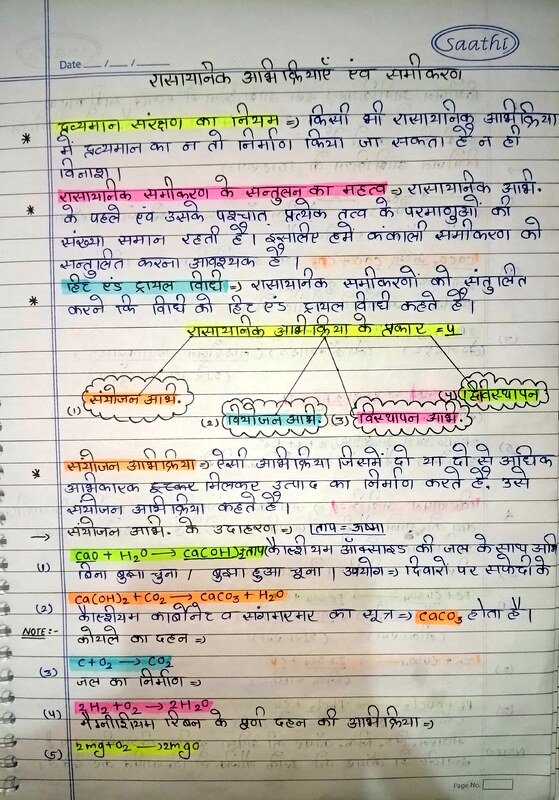 Saathi
Date ___/___/___
रासायनिक अभिक्रियाएँ एंव समीकरण
* द्रव्यमान संरक्षण का नियम => किसी भी रासायनिक अभिक्रिया
में द्रव्यमान का न तो निर्माण किया जा सकता है न ही
विनाश।
* रासायनिक समीकरण के सन्तुलन का महत्व => रासायनिक अभि.
के पहले एवं उसके पश्चात प्रत्येक तत्व के परमाणुओं की
संख्या समान रहती है। इसलिए हमें कंकाली समीकरण को
सन्तुलित करना आवश्यक है।
* हिट एंड ट्रायल विधि => रासायनिक समीकरणों को संतुलित
करने कि विधि को हिट एंड ट्रायल विधि कहते है।
रासायनिक अभिक्रिया के प्रकार = 4
(1) संयोजन अभि. (2) वियोजन अभि. (3) विस्थापन अभि. (4) द्विविस्थापन
* संयोजन अभिक्रिया => ऐसी अभिक्रिया जिसमें दो या दो से अधिक
अभिकारक मिलकर उत्पाद का निर्माण करते है. उसे
संयोजन अभिक्रिया कहते है।
→ संयोजन अभि. के उदाहरण => ताप = ऊष्मा
(1) CaO + H₂O → Ca(OH)₂ + ताप (कैल्शियम ऑक्साइड की जल के साथ अभि
बिना बुझा चुना / बुझा हुआ चूना। उपयोग => दिवारों पर सफेदी के
(2) Ca(OH)₂ + CO₂ → CaCO₃ + H₂O
NOTE :- कैल्शियम कार्बोनेट व संगमरमर का सूत्र => CaCO₃ होता है।
कोयले का दहन =>
(3) C + O₂ → CO₂
जल का निर्माण =>
(4) 2H₂ + O₂ → 2H₂O
मैग्नीशियम रिबन के पूर्ण दहन की अभिक्रिया =>
(5) 2mg + O₂ → 2mgO
Page No.